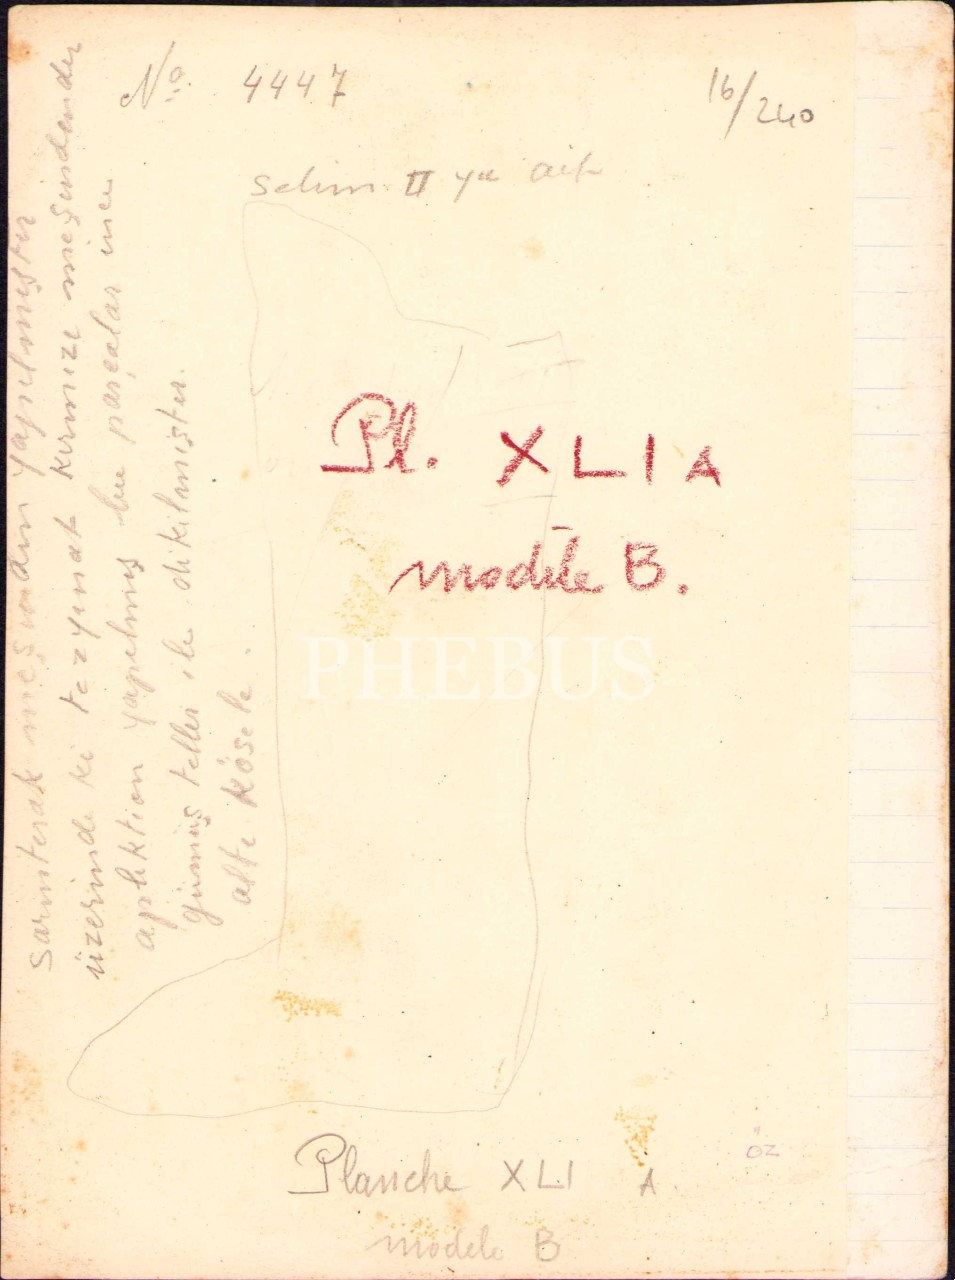 No 4447
16/240
Selim II ye ait
Pl. XLI A
modèle B.
PHEBUS
Planche XLI A
modèle B
ÖZ
Sarımtırak meşinden yapılmıştır
üzerindeki tezyinat kırmızı meşindendir
apliktion yapılmış bu parçalar ince
gümüş teller ile dikilmiştir.
altı kösele.